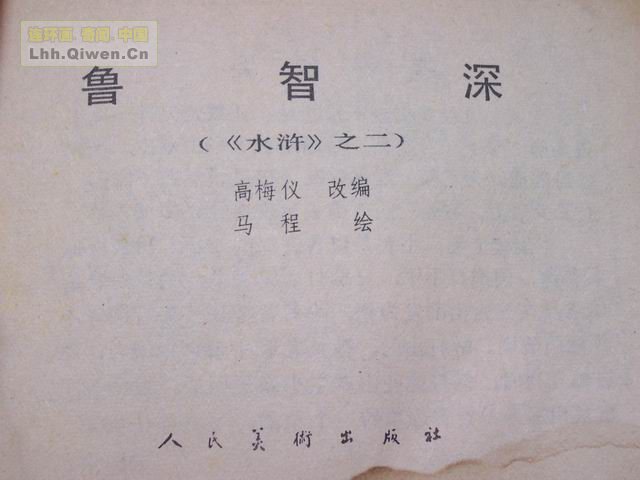 连环画.奇闻.中国
Lhh.Qiwen.Cn
鲁 智 深
(《水浒》之二)
高梅仪 改编
马程 绘
人民美術出版社